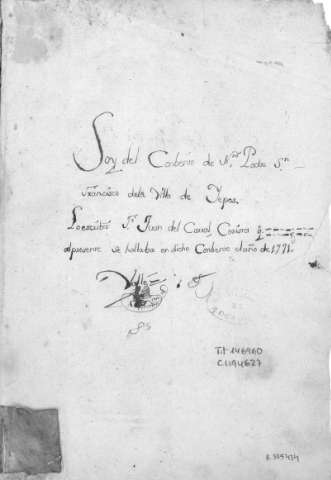 Soy del Conbento de N.ro Padre S.n
Francisco dela Villa de Yepes.
Lo escribió Fr. Juan del Casal Corera q.e
alpresente se hallaba en dicho Conbento el año de 1771.
Tit 146960
C.1194627
R.305434